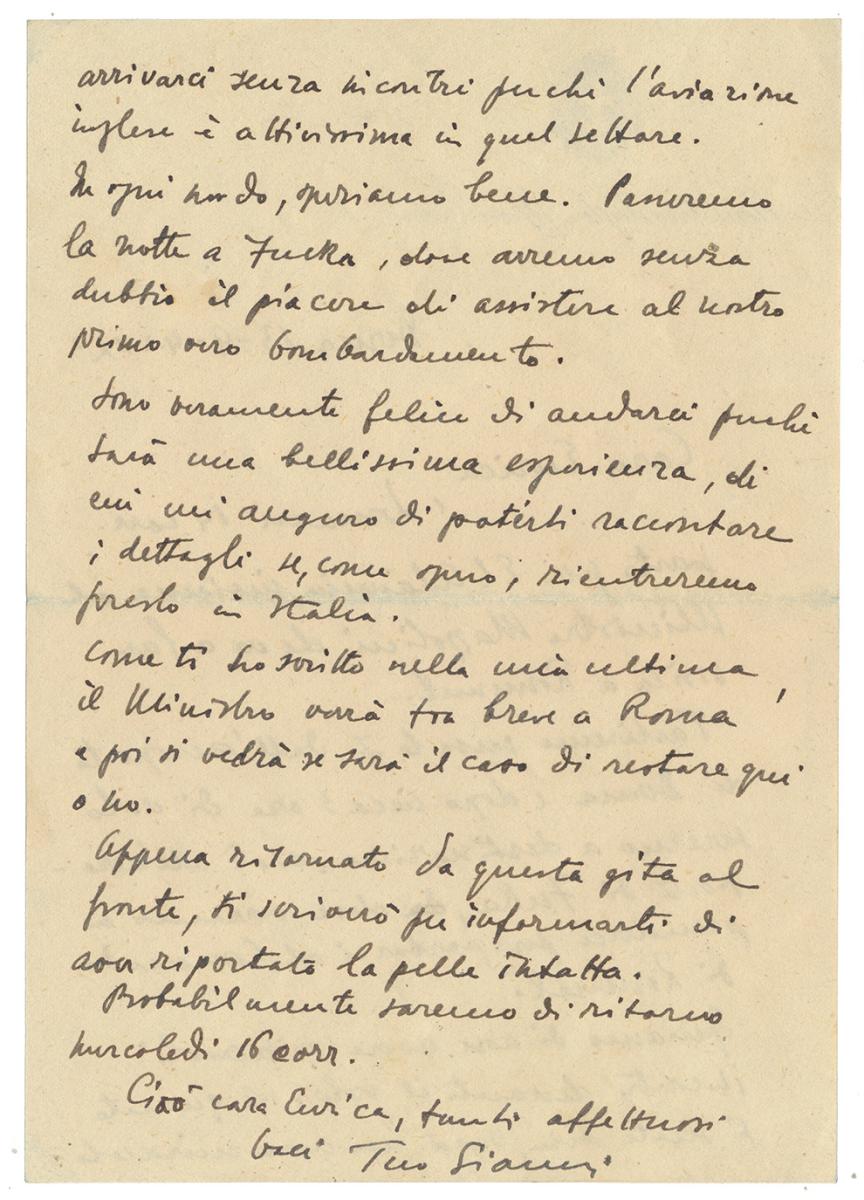 arrivarci senza incontri perché l'aviazione
inglese è attivissima in quel settore.
In ogni modo, speriamo bene. Passeremo
la notte a Fuka, dove avremo senza
dubbio il piacere di assistere al nostro
primo vero bombardamento.
Sono veramente felice di andarci perché
sarà una bellissima esperienza, di
cui mi auguro di poterti raccontare
i dettagli se, come spero, rientreremo
presto in Italia.
Come ti ho scritto nella mia ultima,
il Ministro verrà tra breve a Roma
e poi si vedrà se sarà il caso di restare qui
o no.
Appena ritornato da questa gita al
fronte, ti scriverò per informarti di
aver riportato la pelle intatta.
Probabilmente saremo di ritorno
mercoledì 16 corr.
Ciaò cara Enrica, tanti affettuosi
baci Tuo Gianni